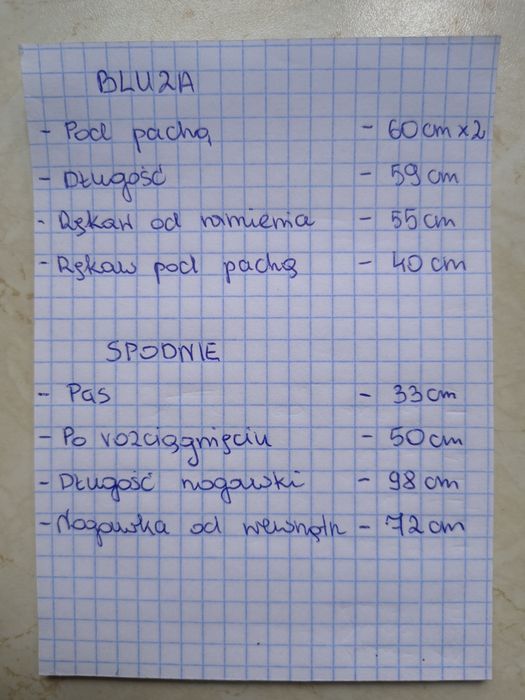 BLUZA
- Pod pachą - 60 cm x 2
- Długość - 59 cm
- Rękaw od ramienia - 55 cm
- Rękaw pod pachą - 40 cm
SPODNIE
- Pas - 33 cm
- Po rozciągnięciu - 50 cm
- Długość nogawki - 98 cm
- Nogawka od wewnątr - 72 cm